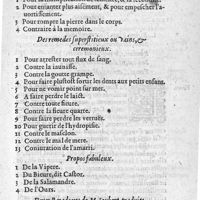 2 Pour enfanter plus aisément, & pour empescher l'a-
uortissement.
3 Pour rompre la pierre dans le corps.
4 Contraire à la memoire.
Des remedes superstitieux ou vains, &
ceremonieux.
1 Pour arrester tout flux de sang.
2 Contre la iaunisse.
3 Contre la goutte grampe.
4 Pour faire plustost sortir les dents aux petits enfans.
5 Pour ne vomir point sur mer.
6 A faire perdre le laict.
7 Contre toute fieure.
8 Contre la fieure quarte.
9 Pour faire perdre les verruës.
10 Pour guerir de l'hydropisie.
11 Contre le masclon.
12 Contre le mal de mere.
13 Coniuration de l'amarri.
Propos fabuleux.
1 De la Vipere.
2 Du Bieure, dit Castor.
3 De la Salamandre.
4 De l'Ours.